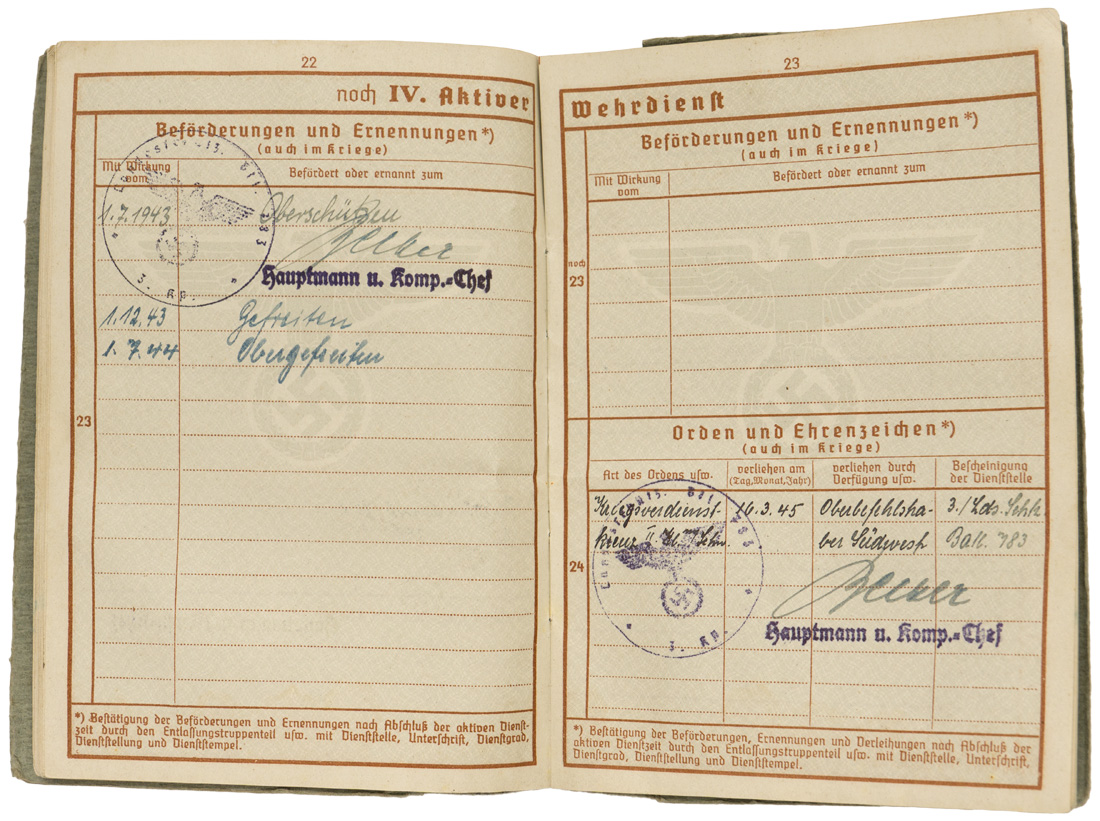 22
noch IV. Aktiver
Beförderungen und Ernennungen*)
(auch im Kriege)
Mit Wirkung vom
Befördert oder ernannt zum
1.7.1943 Oberschützen
Hauptmann u. Komp.-Chef
1.12.43 Gefreiten
1.7.44 Obergefreiten
23
3. Kp.
*) Bestätigung der Beförderungen und Ernennungen nach Abschluß der aktiven Dienst-
zeit durch den Entlassungstruppenteil usw. mit Dienststelle, Unterschrift, Dienstgrad,
Dienststellung und Dienststempel.
23
Wehrdienst
Beförderungen und Ernennungen*)
(auch im Kriege)
Mit Wirkung vom
Befördert oder ernannt zum
noch
23
Orden und Ehrenzeichen*)
(auch im Kriege)
Art des Ordens usw.
verliehen am
(Tag, Monat, Jahr)
verliehen durch
Verfügung usw.
Bescheinigung
der Dienststelle
Kriegsverdienst- 16.3.45 Oberbefehlsha- 3./Lds. Schtz.
kreuz II. Kl. m. Schw. ber Südwest Batl. 783
24
Hauptmann u. Komp.-Chef
3. Kp.
*) Bestätigung der Beförderungen, Ernennungen und Verleihungen nach Abschluß der
aktiven Dienstzeit durch den Entlassungstruppenteil usw. mit Dienststelle, Unterschrift,
Dienstgrad, Dienststellung und Dienststempel.